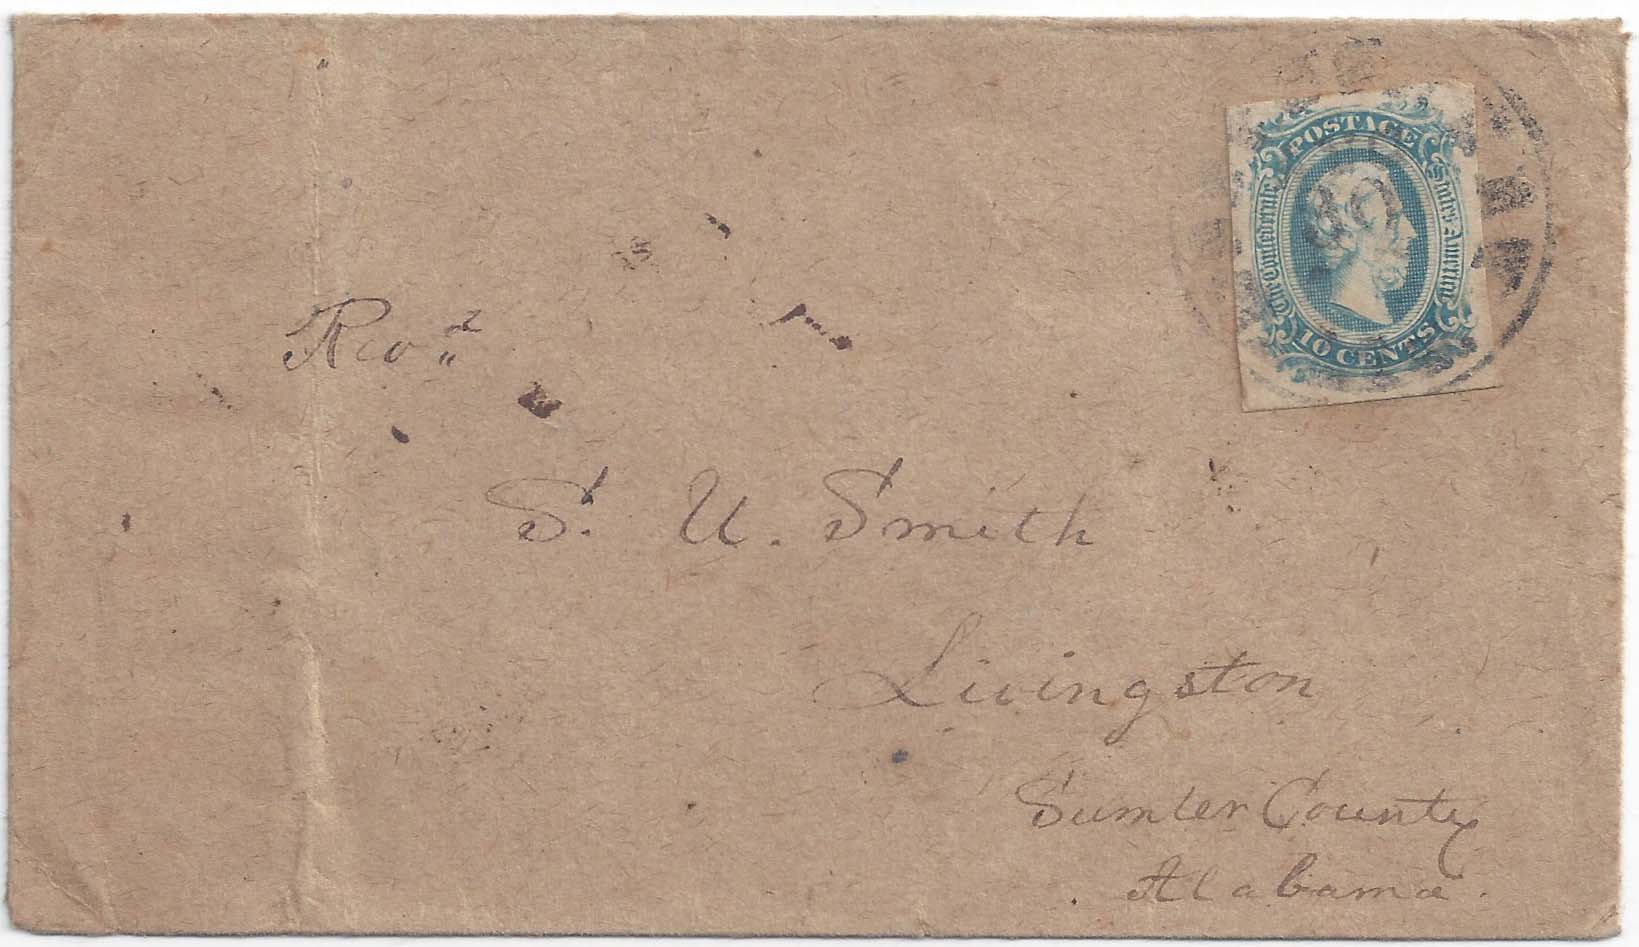 POSTAGE
The Confederate States America
10 CENTS
Rev.d
S. U. Smith
Livingston
Sumter County
Alabama.